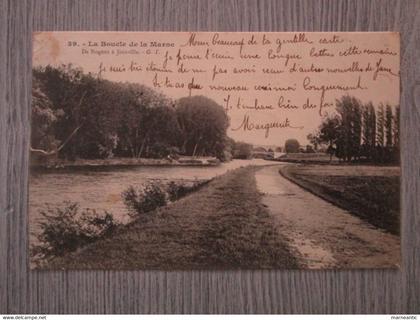 29. - La Boucle de la Marne
De Nogent à Joinville. - G. I.
Merci beaucoup de ta gentille carte
Je pense t'écrire une longue lettre cette semaine
Je suis de ne pas avoir reçu d'autres nouvelles de
si tu as de nouveau moi longuement
Je t'embrasse bien des fois
Marguerite
© delcampe.net
marneantic